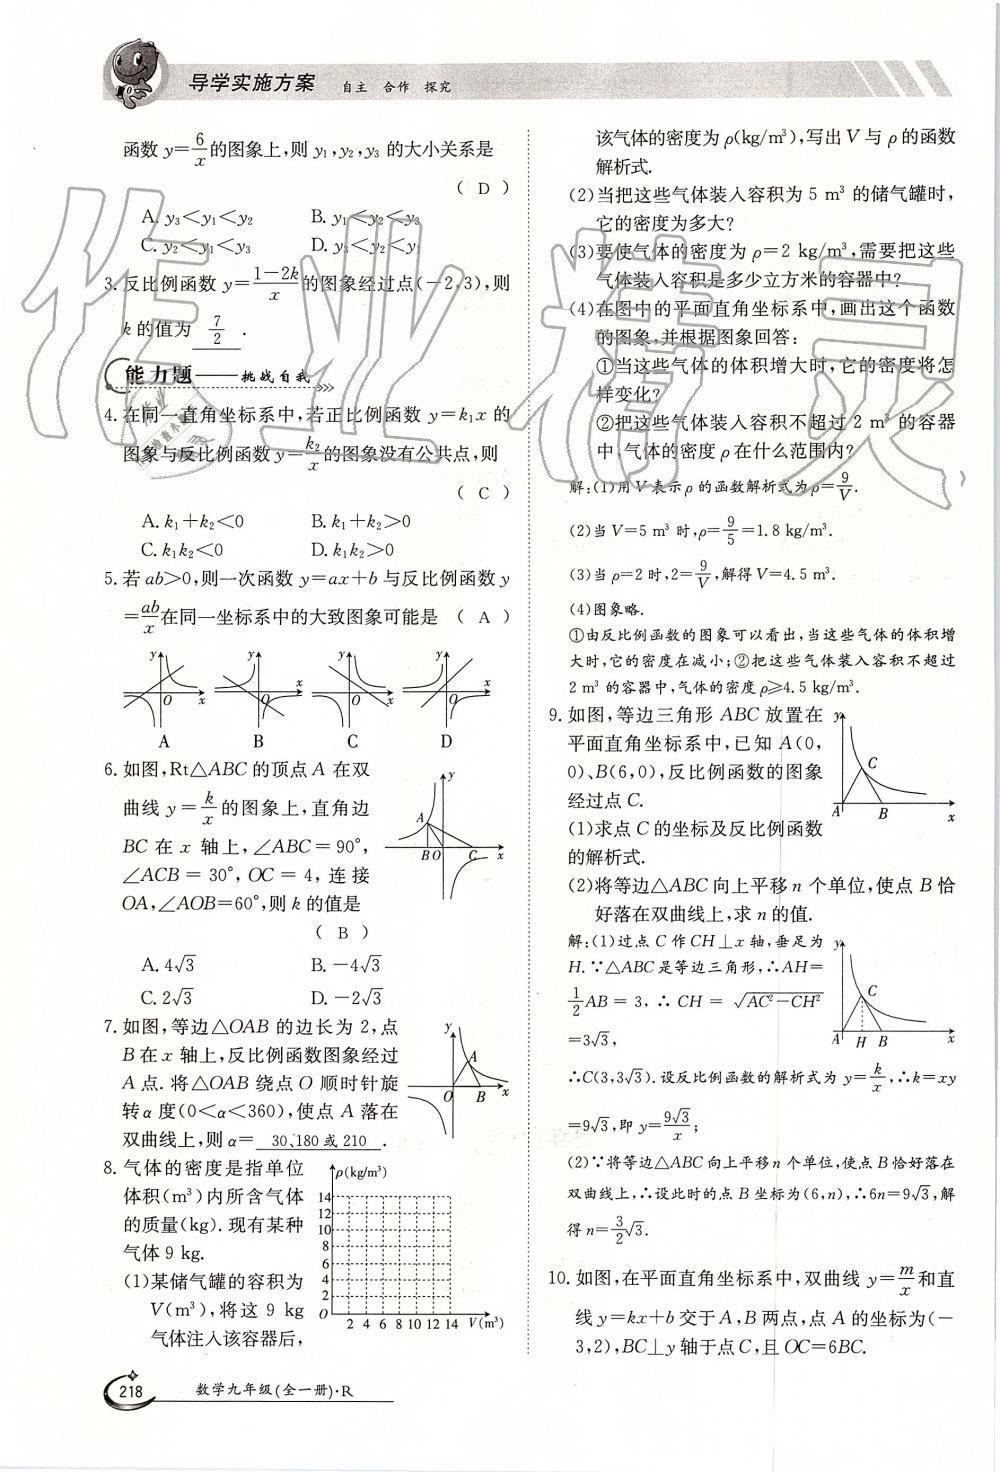 导学实施方案 自主 合作 探究
函数 y=6/x 的图象上,则 y₁,y₂,y₃ 的大小关系是
( D )
A. y₃<y₁<y₂ B. y₁<y₂<y₃
C. y₂<y₁<y₃ D. y₃<y₂<y₁
3. 反比例函数 y=(1-2k)/x 的图象经过点(-2,3),则
k 的值为 7/2 .
能力题——挑战自我
4. 在同一直角坐标系中,若正比例函数 y=k₁x 的
图象与反比例函数 y=k₂/x 的图象没有公共点,则
( C )
A. k₁+k₂<0 B. k₁+k₂>0
C. k₁k₂<0 D. k₁k₂>0
5. 若 ab>0,则一次函数 y=ax+b 与反比例函数 y
=ab/x 在同一坐标系中的大致图象可能是 ( A )
y y y y
O x O x O x O x
A B C D
6. 如图,Rt△ABC 的顶点 A 在双
曲线 y=k/x 的图象上,直角边
BC 在 x 轴上,∠ABC=90°,
∠ACB=30°,OC=4,连接
OA,∠AOB=60°,则 k 的值是
( B )
y
A
B O C x
A. 4√3 B. -4√3
C. 2√3 D. -2√3
7. 如图,等边△OAB 的边长为 2,点
B 在 x 轴上,反比例函数图象经过
A 点. 将△OAB 绕点 O 顺时针旋
转 α 度(0<α<360),使点 A 落在
双曲线上,则 α= 30、180 或 210 .
y
A
O B x
8. 气体的密度是指单位
体积(m³)内所含气体
的质量(kg). 现有某种
气体 9 kg.
(1)某储气罐的容积为
V(m³),将这 9 kg
气体注入该容器后,
ρ(kg/m³)
14
12
10
8
6
4
2
O 2 4 6 8 10 12 14 V(m³)
218 数学九年级(全一册)·R
该气体的密度为 ρ(kg/m³),写出 V 与 ρ 的函数
解析式.
(2)当把这些气体装入容积为 5 m³ 的储气罐时,
它的密度为多大?
(3)要使气体的密度为 ρ=2 kg/m³,需要把这些
气体装入容积是多少立方米的容器中?
(4)在图中的平面直角坐标系中,画出这个函数
的图象,并根据图象回答:
①当这些气体的体积增大时,它的密度将怎
样变化?
②把这些气体装入容积不超过 2 m³ 的容器
中,气体的密度 ρ 在什么范围内?
解:(1)用 V 表示 ρ 的函数解析式为 ρ=9/V.
(2)当 V=5 m³ 时,ρ=9/5=1.8 kg/m³.
(3)当 ρ=2 时,2=9/V,解得 V=4.5 m³.
(4)图象略.
①由反比例函数的图象可以看出,当这些气体的体积增
大时,它的密度在减小;②把这些气体装入容积不超过
2 m³ 的容器中,气体的密度 ρ⩾4.5 kg/m³.
9. 如图,等边三角形 ABC 放置在
平面直角坐标系中,已知 A(0,
0)、B(6,0),反比例函数的图象
经过点 C.
(1)求点 C 的坐标及反比例函数
的解析式.
y
C
A B x
(2)将等边△ABC 向上平移 n 个单位,使点 B 恰
好落在双曲线上,求 n 的值.
解:(1)过点 C 作 CH⊥x 轴,垂足为
H. ∵△ABC 是等边三角形,∴AH=
1/2 AB=3,∴CH=√(AC²-CH²)
=3√3,
y
C
A H B x
∴C(3,3√3). 设反比例函数的解析式为 y=k/x,∴k=xy
=9√3,即 y=9√3/x;
(2)∵将等边△ABC 向上平移 n 个单位,使点 B 恰好落在
双曲线上,∴设此时的点 B 坐标为(6,n),∴6n=9√3,解
得 n=3/2 √3.
10. 如图,在平面直角坐标系中,双曲线 y=m/x 和直
线 y=kx+b 交于 A,B 两点,点 A 的坐标为(-
3,2),BC⊥y 轴于点 C,且 OC=6BC.
作业精灵